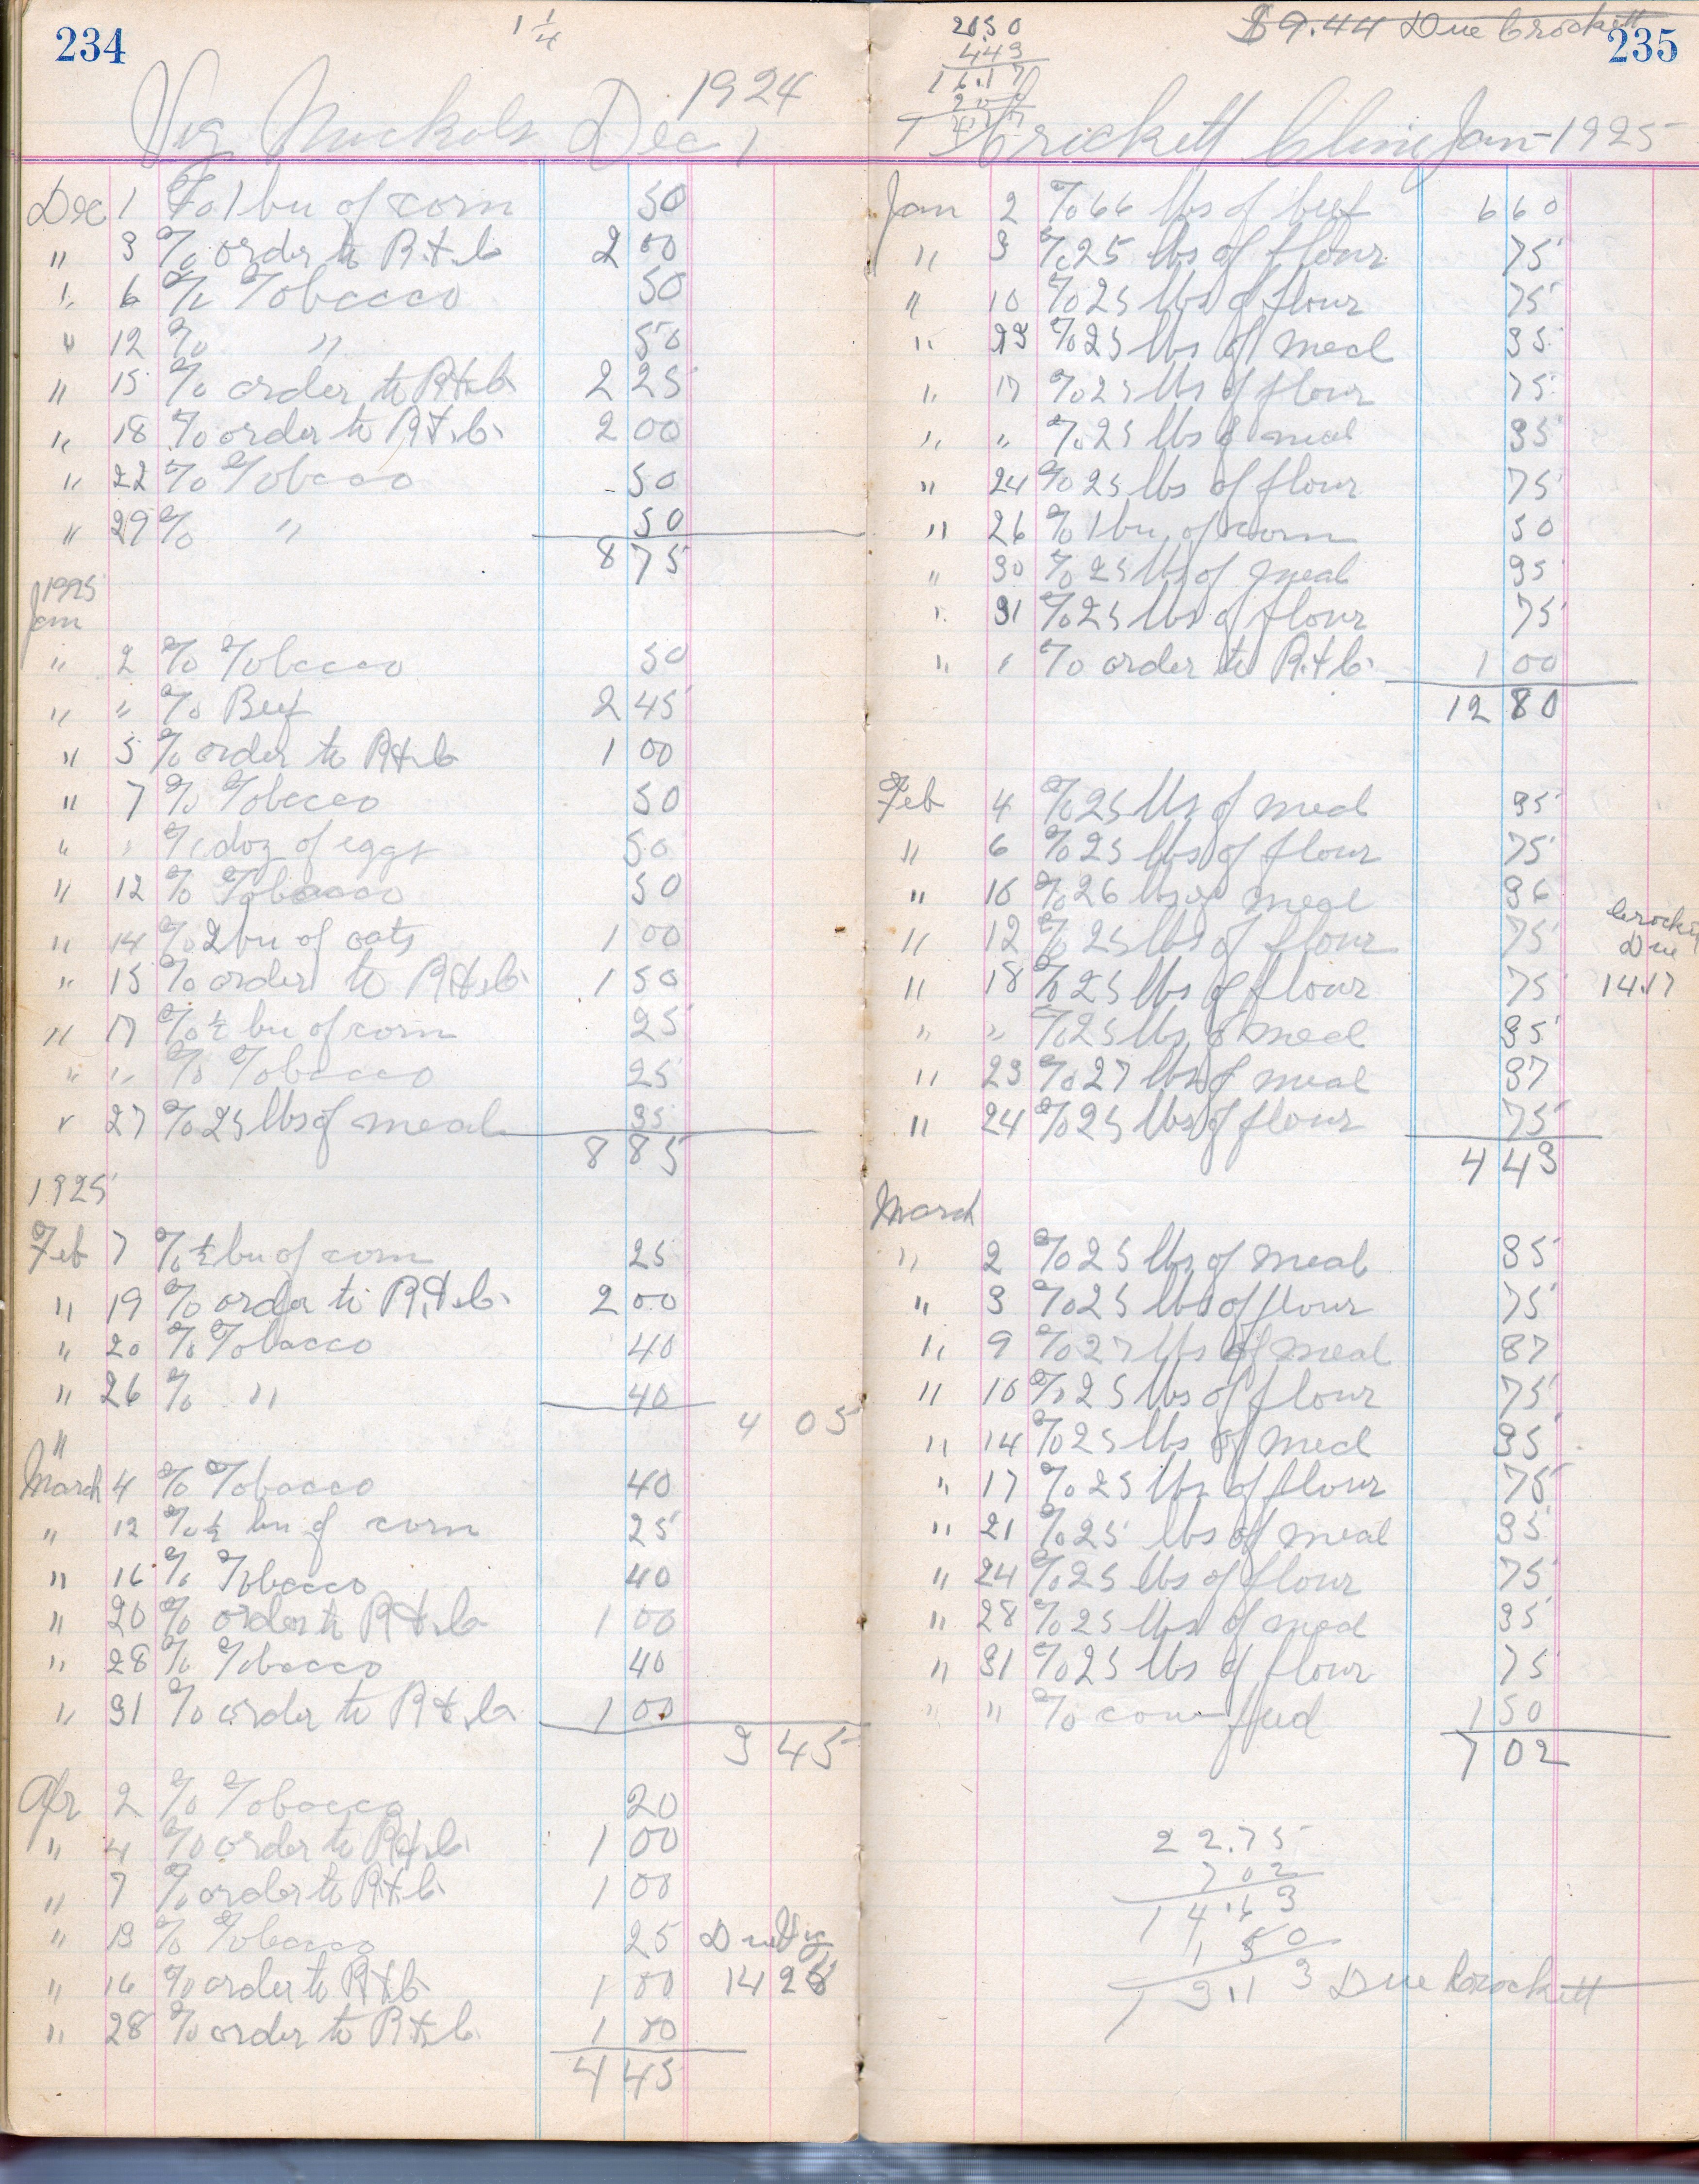 234
1 1/4
1924
Vig Nuckols Dec 1
Dec 1 To 1 bu of corn 50
" 3 % order to R.&.C. 2 00
" 6 % Tobacco 50
" 12 % " 50
" 15 % order to R.&.C. 2 25
" 18 % order to R.&.C. 2 00
" 22 % Tobacco 50
" 29 % " 50
8 75
1925
Jan
" 2 % Tobacco 50
" " % Beef 2 45
" 5 % order to R.&.C 1 00
" 7 % Tobacco 50
" " % doz of eggs 50
" 12 % Tobacco 50
" 14 % 2 bu of oats 1 00
" 15 % order to R.&.C. 1 50
" 17 % 1/2 bu of corn 25
" " % Tobacco 25
" 27 % 25 lbs of meal 35
8 85
1925
Feb 7 % 1/2 bu of corn 25
" 19 % order to R.&.C. 2 00
" 20 % Tobacco 40
" 26 % " 40
4 05
"
March 4 % Tobacco 40
" 12 % 1/2 bu of corn 25
" 16 % Tobacco 40
" 20 % order to R.&.C 1 00
" 28 % Tobacco 40
" 31 % order to R.&.C. 1 00
3 45
Apr 2 % Tobacco 20
" 4 % order to R.&.C. 1 00
" 7 % order to R.&.C. 1 00
" 13 % Tobacco 25 Due Vig
" 16 % order to R.&.C. 1 00 14 26
" 28 % order to R.&.C. 1 00
4 45
$9.44 Due Crockett
235
20.50
4 43
16.17
2 00
Crickett Cline Jan - 1925
Jan 2 % 66 lbs of beef 6 60
" 3 % 25 lbs of flour 75
" 10 % 25 lbs of flour 75
" 13 % 25 lbs of meal 35
" 17 % 25 lbs of flour 75
" " % 25 lbs of meal 35
" 24 % 25 lbs of flour 75
" 26 % 1 bu of corn 50
" 30 % 25 lbs of meal 35
" 31 % 25 lbs of flour 75
" " % order to R.&.C. 1 00
12 80
Feb 4 % 25 lbs of meal 35
" 6 % 25 lbs of flour 75
" 10 % 26 lbs of meal 36
" 12 % 25 lbs of flour 75
Crockett
Due
14.17
" 18 % 25 lbs of flour 75
" " % 25 lbs of meal 35
" 23 % 27 lbs of meal 37
" 24 % 25 lbs of flour 75
4 43
March
" 2 % 25 lbs of meal 35
" 3 % 25 lbs of flour 75
" 9 % 27 lbs of meal 37
" 10 % 25 lbs of flour 75
" 14 % 25 lbs of meal 35
" 17 % 25 lbs of flour 75
" 21 % 25 lbs of meal 35
" 24 % 25 lbs of flour 75
" 28 % 25 lbs of meal 35
" 31 % 25 lbs of flour 75
" " % cow feed 1 50
7 02
22.75
7 02
14.63
1 50
13.13 Due Crockett